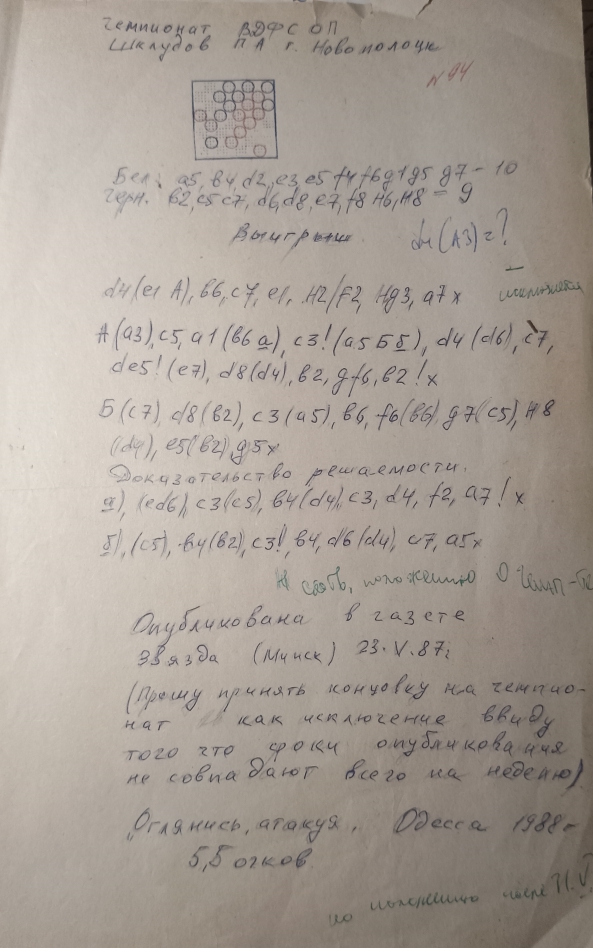 Чемпионат ВДФСОП
Шклудов П А г. Новополоцк
№94
Бел: а5, в4, d2, е3, е5 f4 f6 g1 g5 g7 - 10
Черн. в2, с5 с7, d6, d8, е7, f8 н6, н8 = 9
Выигрыш
(А3)=?
d4 (е1 А), в6, с7, е1, н2/F2, нg3, а7х
А (а3), с5, а1 (в6 а), с3! (а5 Б б), d4 (d6), с7,
de5! (е7), d8 (d4), в2, gf6, в2! х
Б (с7), d8 (в2), с3 (а5), в6, f6 (в6), g7 (с5), н8
(d4), е5 (в2), g5х
Доказательство решаемости.
а), (ed6), с3 (с5), в4 (d4), с3, d4, f2, а7! х
б), (с5), в4 (в2), с3!, в4, d6 (d4), с7, а5х
положению о
Опубликована в газете
Звязда (Минск) 23.V.87г
(Прошу принять концовку на чемпио-
нат как исключение ввиду
того что сроки опубликования
не совпадают всего на неделю).
"Оглянись, атакуя. Одесса 1988г
5,5 очков.
по положению после